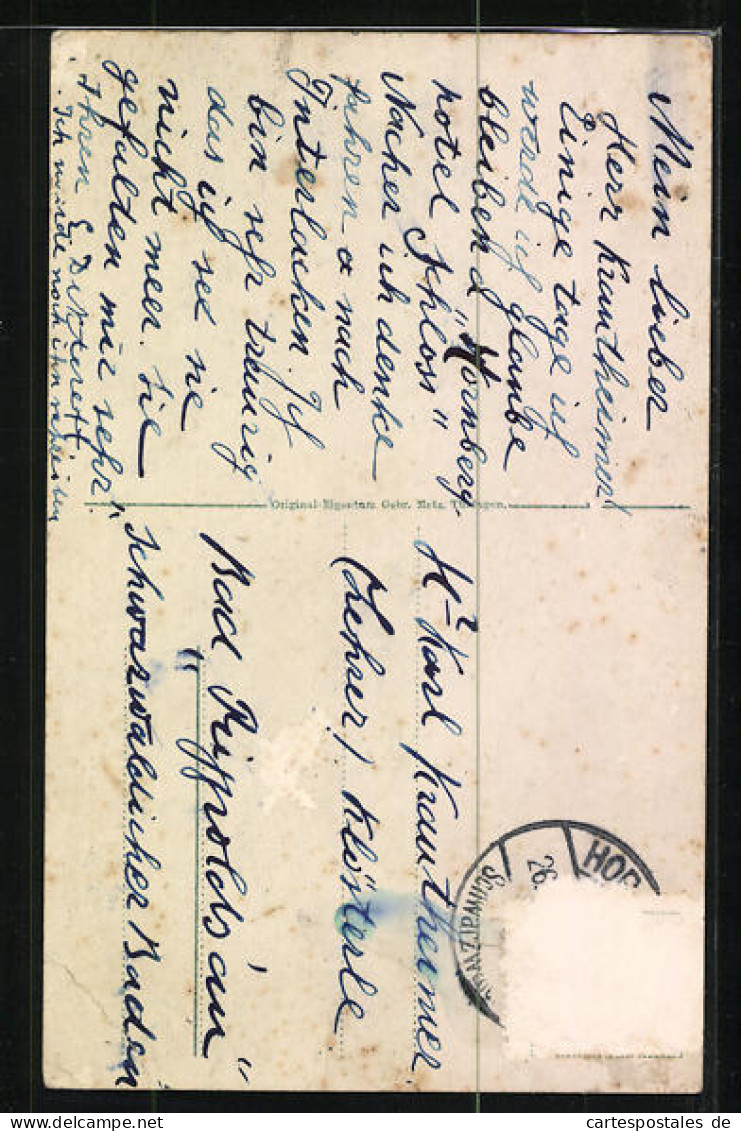 Mein lieber
Herr Krautheimer!
Einige tage ich
werde ich glaube
bleiben d "Hornberg
hotel Schloss"
Nacher ich denke
fahren & nach
Interlacken. Ich
bin sehr traurig
das ich sie sie
nicht meer. Sie
gefallen mir sehr
Ihren
Ich würde noch ihn schreiben
Original-Eigentum Gebr. Metz, Tübingen.
Karl Krautheimer
(Lehrer) Klösterle
Bad "Rippolds'au"
"Schwarzwaldicher Baden
HOR
26.
SCHWARZWALD
cartespostales.de